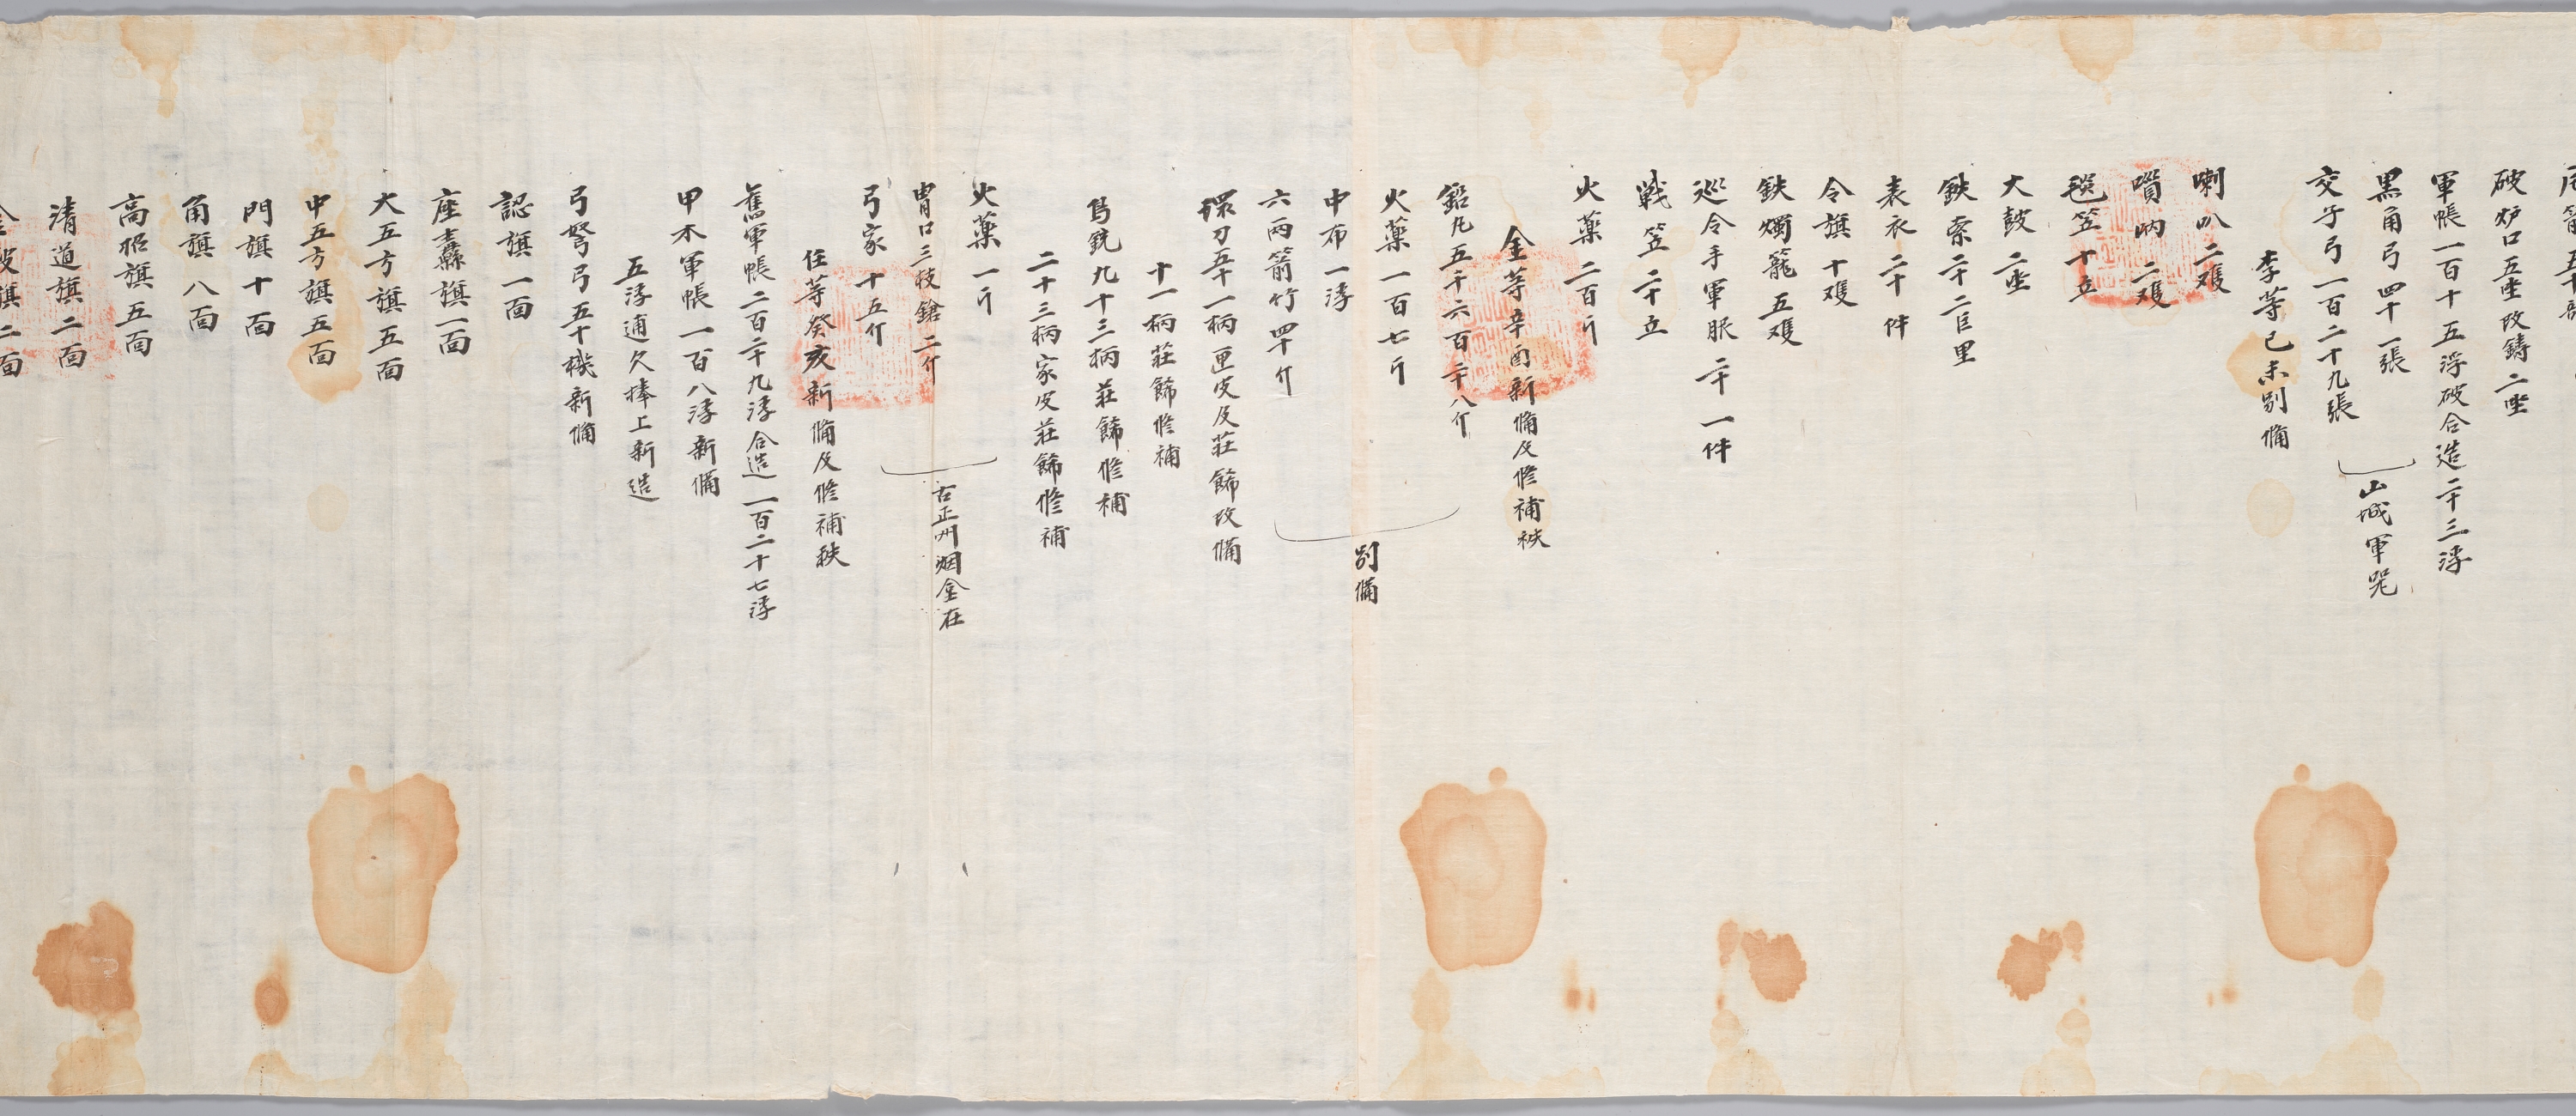 破炉口五坐改鑄二坐
軍帳一百十五浮破合造二十三浮
黑角弓四十一張
交子弓一百二十九張
山城軍器
李等己未別備
喇叭二雙
嗩吶二雙
氊笠十立
大鼓二坐
鉄索二十二巨里
表衣二十件
令旗十雙
鉄燭籠五雙
巡令手軍服二十一件
戰笠二十立
火藥二百斤
金等辛酉新備及修補秩
鉛丸五千六百二十八介
火藥一百七斤
中布一浮
六兩箭竹四十介
別備
環刀五十一柄匣皮及莊餙改備
十一柄莊餙修補
鳥銃九十三柄莊餙修補
二十三柄家皮莊餙修補
火藥一斤
冑口三枝鎗二介
弓家十五介
古正州烟金在
任等癸亥新備及修補秩
舊軍帳二百二十九浮合造一百二十七浮
甲木軍帳一百八浮新備
五浮逋欠捧上新造
弓弩弓五十機新備
認旗一面
座纛旗一面
大五方旗五面
中五方旗五面
門旗十面
角旗八面
高招旗五面
清道旗二面
金鼓旗二面